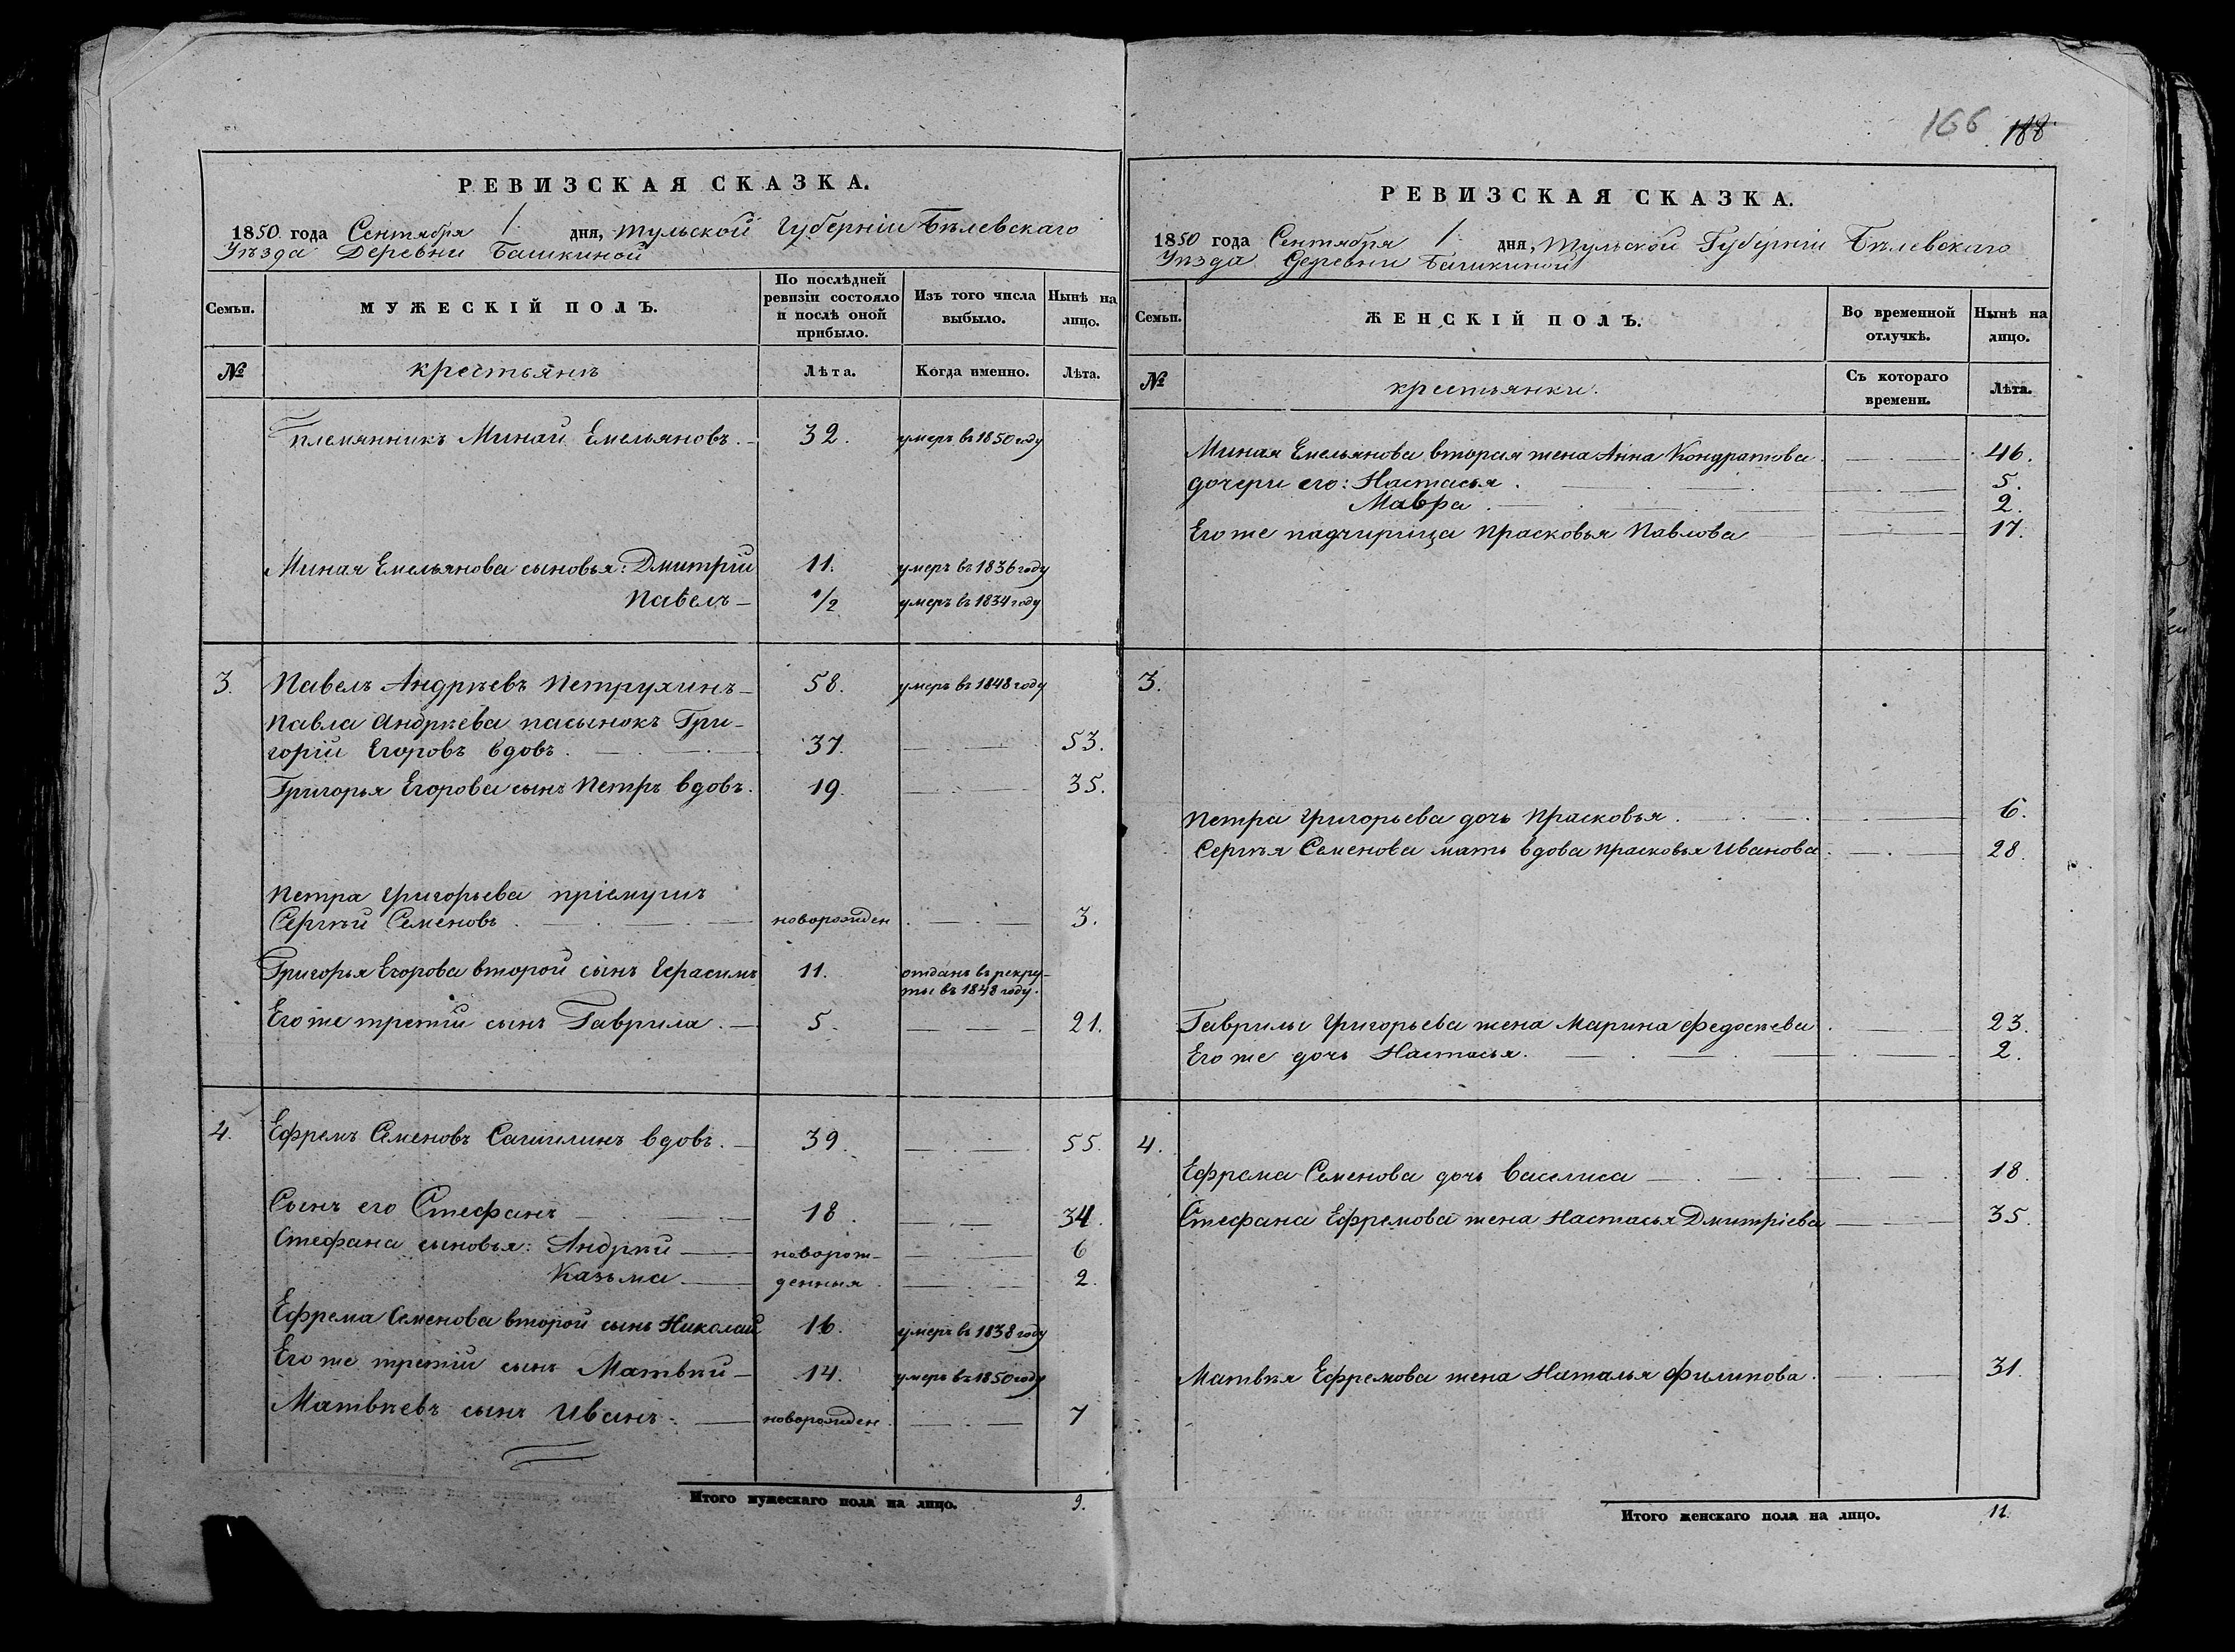 РЕВИЗСКАЯ СКАЗКА.
1850 года Сентября 1 дня, Тульской Губерніи Бѣлевскаго
Уѣзда Деревни Башкиной
Семьи. МУЖЕСКІЙ ПОЛЪ. По послѣдней ревизіи состояло и послѣ оной прибыло. Изъ того числа выбыло. Нынѣ на лицо.
№ крестьянъ Лѣта. Когда именно. Лѣта.
Племянникъ Минай Емельяновъ. 32. умеръ въ 1850 году
Миная Емельянова сыновья: Дмитрій 11. умеръ въ 1836 году
Павелъ 1/2 умеръ въ 1834 году
3. Павелъ Андрѣевъ Петрухинъ 58. умеръ въ 1848 году
Павла Андрѣева пасынокъ Гри-
горій Егоровъ вдовъ. 37. 53.
Григорья Егорова сынъ Петръ вдовъ. 19. 35.
Петра Григорьева пріемушъ
Сергѣй Семеновъ. новорожден 3.
Григорья Егорова второй сынъ Герасимъ 11. отданъ въ рекру-
ты въ 1848 году.
Его же третій сынъ Гаврила. 5. 21.
4. Ефремъ Семеновъ Сашилинъ вдовъ. 39. 55.
Сынъ его Стефанъ 18. 34.
Стефана сыновья: Андрѣй новорож- 6
Казьма денныя 2.
Ефрема Семенова второй сынъ Николай 16. умеръ въ 1838 году
Его же третій сынъ Матвѣй 14. умеръ въ 1850 году
Матвѣевъ сынъ Иванъ. новорожден. 7
Итого мужескаго пола на лицо. 9.
166 188
РЕВИЗСКАЯ СКАЗКА.
1850 года Сентября 1 дня, Тульской Губерніи Бѣлевскаго
Уѣзда Деревни Башкиной
Семьи. ЖЕНСКІЙ ПОЛЪ. Во временной отлучкѣ. Нынѣ на лицо.
№ крестьянки. Съ котораго времени. Лѣта.
Миная Емельянова вторая жена Анна Кондратова 46.
дочери его: Настасья. 5.
Мавра. 2.
Его же падчирица Прасковья Павлова 17.
3.
Петра Григорьева дочь Прасковья. 6.
Сергѣя Семенова мать вдова Прасковья Иванова. 28.
Гаврилы Григорьева жена Марина Федосѣева. 23.
Его же дочь Настасья. 2.
4.
Ефрема Семенова дочь Василиса 18.
Стефана Ефремова жена Настасья Дмитріева 35.
Матвѣя Ефремова жена Наталья Филипова. 31.
Итого женскаго пола на лицо. 11.